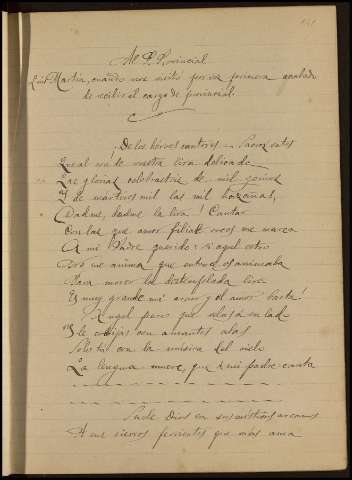 Al P. Provincial
Luis Martin, cuando nos visitó por vez primera acabado
de recibir el cargo de provincial.
De los héroes cantores
Que al son de vuestra lira delicada
Las glorias celebrasteis de mil genios
Y de mártires mil las mil hazañas,
Dadme, dadme la lira! Cantar
Con las que amor filial
A mi Padre querido: si aquel estro
que entonces animaba
Para mover la destemplada lira
Es muy grande mi amor y el amor basta!
Angel puro que velas a su lado
Y le cobijas con amantes alas
Solo tú con la música del cielo
La lengua mueve, que a mi padre canta
Suele Dios en sus
A sus siervos fervientes que más ama